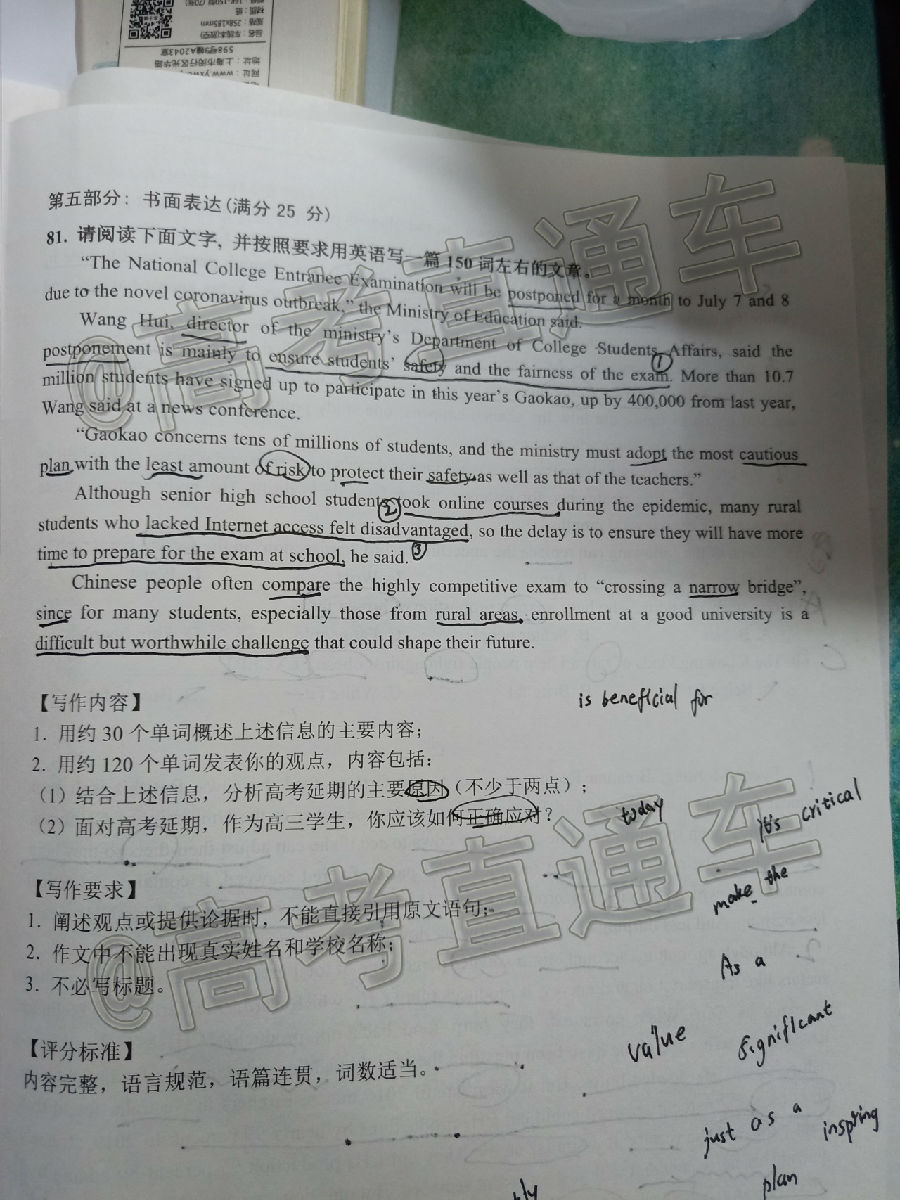 598号9幢A2043室
地址：上海市闵行区光华路
第五部分：书面表达(满分 25 分)
81. 请阅读下面文字，并按照要求用英语写一篇 150 词左右的文章。
“The National College Entrance Examination will be postponed for a month to July 7 and 8
due to the novel coronavirus outbreak,” the Ministry of Education said.
Wang Hui, director of the ministry’s Department of College Students Affairs, said the
postponement is mainly to ensure students’ safety and the fairness of the exam. More than 10.7
①
million students have signed up to participate in this year’s Gaokao, up by 400,000 from last year,
Wang said at a news conference.
“Gaokao concerns tens of millions of students, and the ministry must adopt the most cautious
plan with the least amount of risk to protect their safety as well as that of the teachers.”
Although senior high school students took online courses during the epidemic, many rural
②
students who lacked Internet access felt disadvantaged, so the delay is to ensure they will have more
time to prepare for the exam at school, he said.
③
Chinese people often compare the highly competitive exam to “crossing a narrow bridge”,
since for many students, especially those from rural areas, enrollment at a good university is a
difficult but worthwhile challenge that could shape their future.
【写作内容】
is beneficial for
1. 用约 30 个单词概述上述信息的主要内容；
2. 用约 120 个单词发表你的观点，内容包括：
（1）结合上述信息，分析高考延期的主要原因（不少于两点）；
（2）面对高考延期，作为高三学生，你应该如何正确应对？
today
it's critical
【写作要求】
make the
1. 阐述观点或提供论据时，不能直接引用原文语句；
2. 作文中不能出现真实姓名和学校名称；
As a
3. 不必写标题。
value
significant
【评分标准】
内容完整，语言规范，语篇连贯，词数适当。
just as a
inspring
plan
@高考直通车
@高考直通车